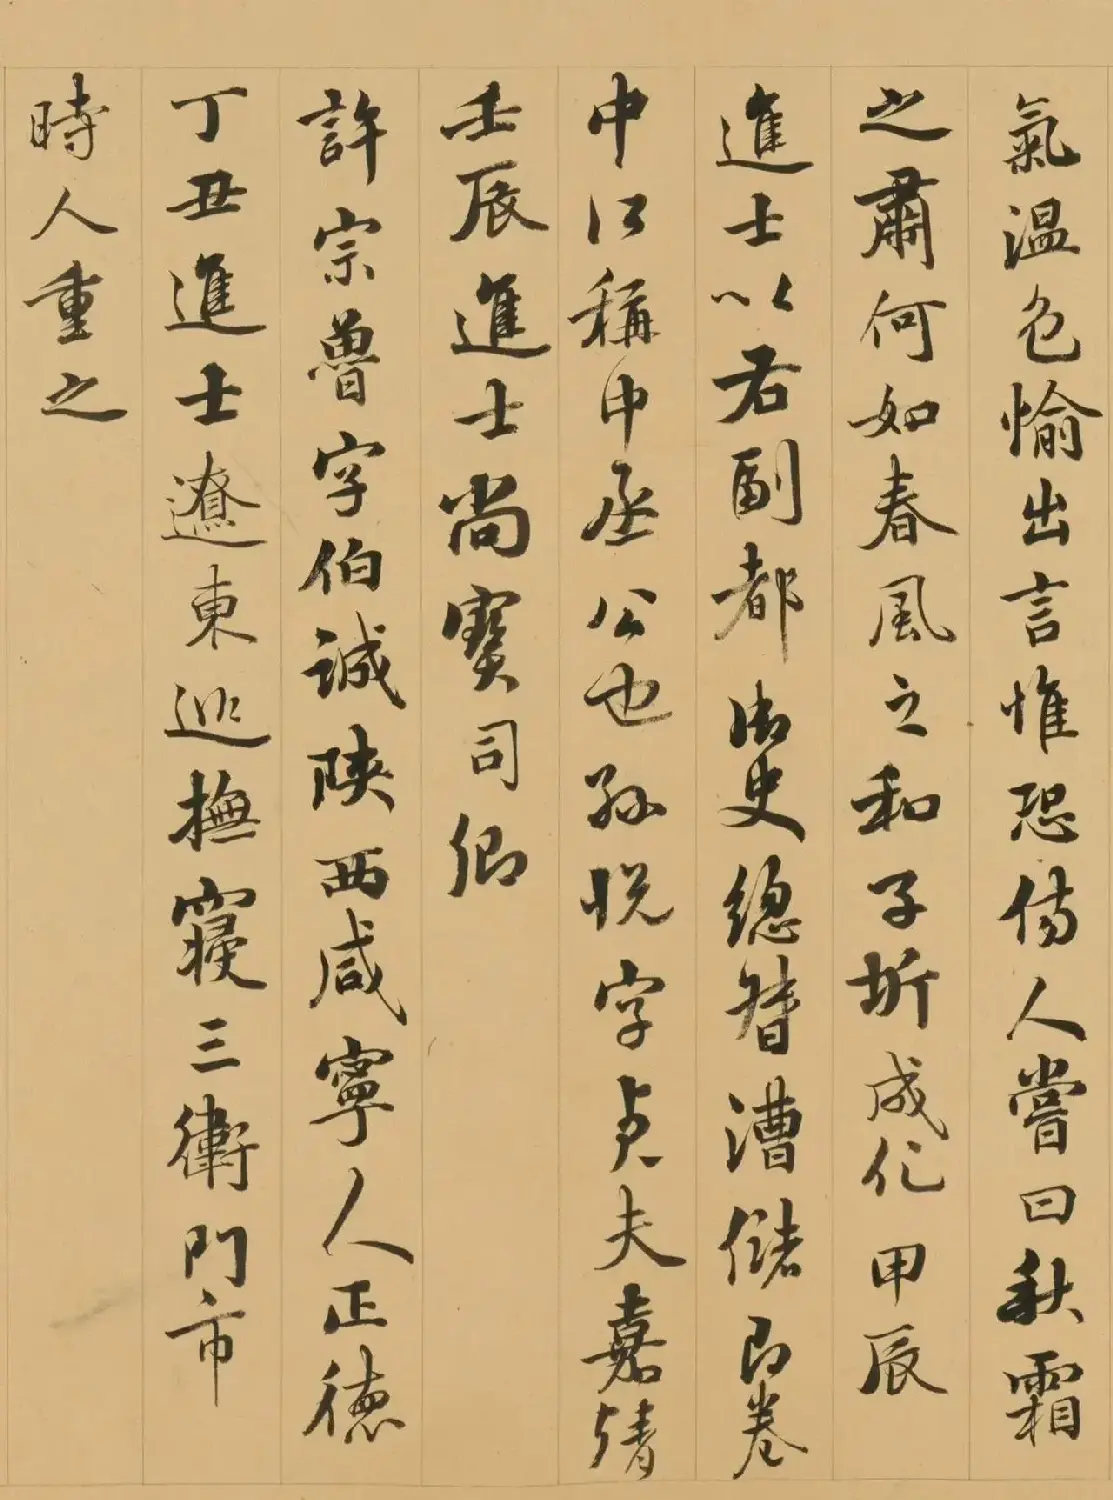 氣温色愉出言惟恐傷人嘗曰秋霜
之肅何如春風之和子圻成化甲辰
進士以右副都御史總督漕儲即卷
中所稱中丞公也孫悅字貞夫嘉靖
壬辰進士尚寶司卿
許宗魯字伯誠陝西咸寧人正德
丁丑進士遼東巡撫寢三衛門市
時人重之